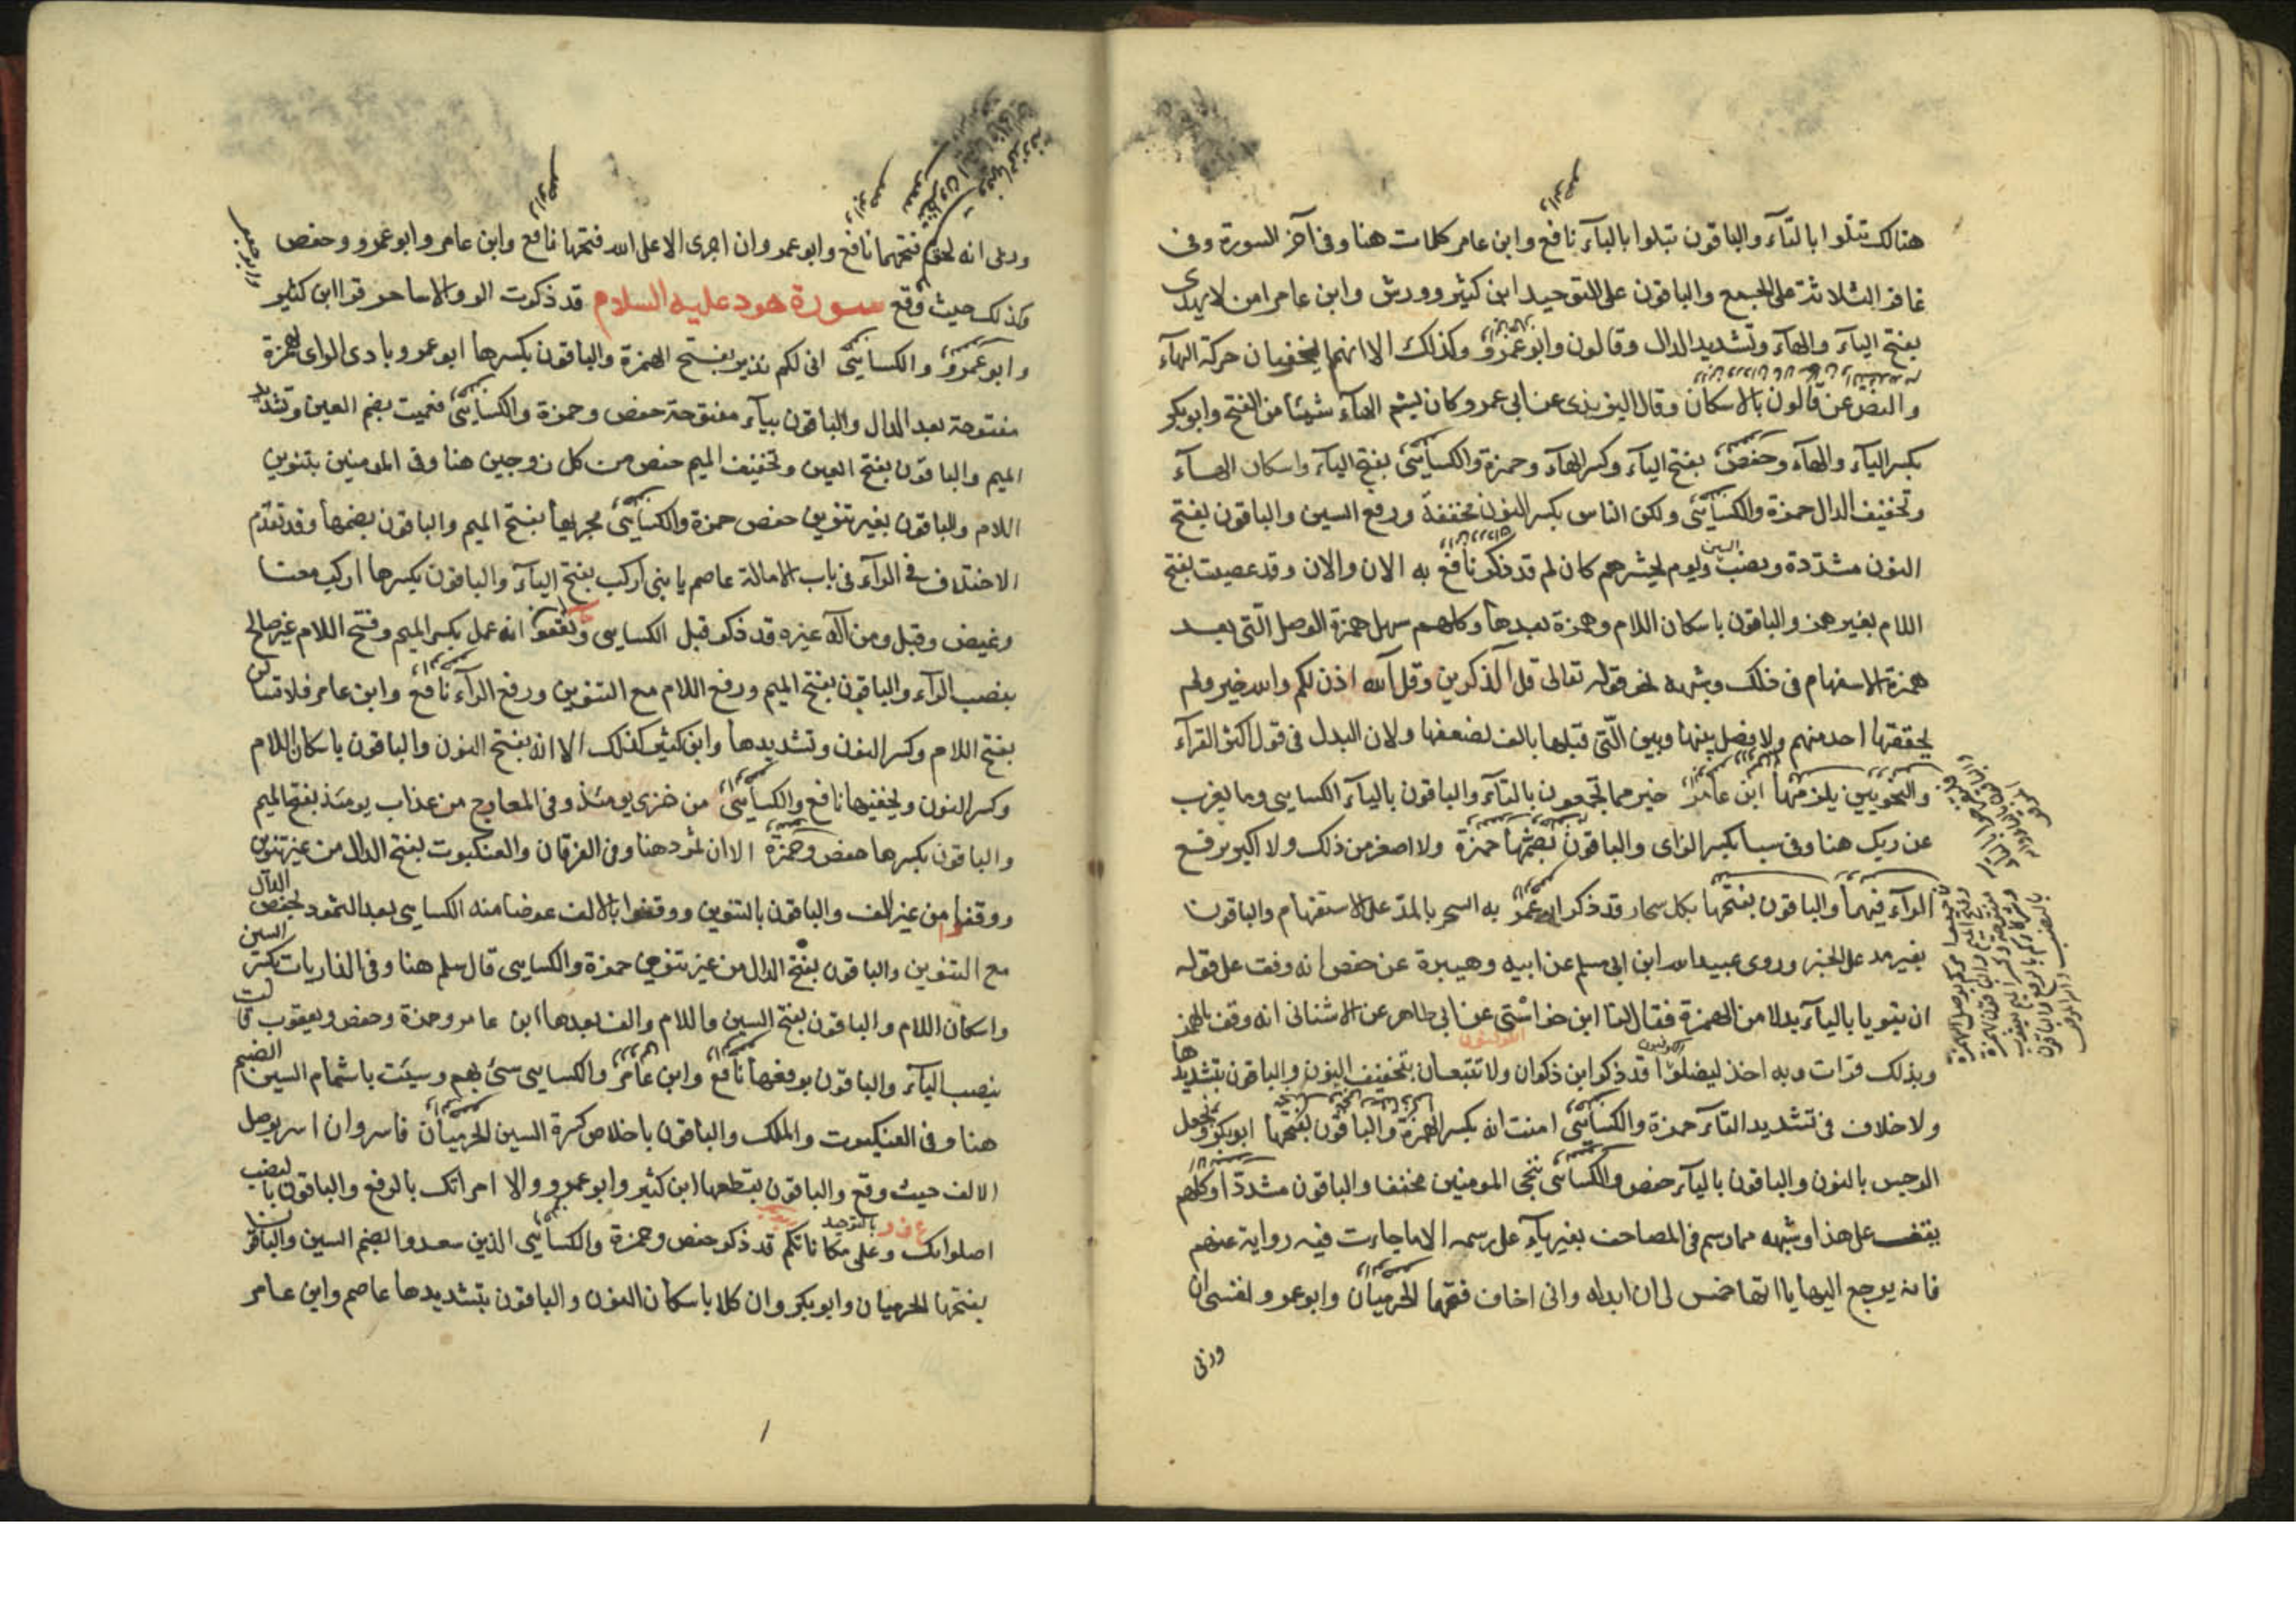 هنالك تتلوا بالتآء والباقون تبلوا بالبآء نافع وابن عامر كلمات هنا وفى آخر السورة وفى
غافر الثلاثة على الجمع والباقون على التوحيد ابن كثير وورش وابن عامر امن لا يهدى
بفتح اليآء والهآء وتشديد الدال وقالون وابو عمرو وكذلك الا انهما يخفيان حركة الهآء
والنص عن قالون بالاسكان وقال اليزيدى عن ابى عمرو كان يشم الهآء شيئا من الفتح وابو بكر
بكسر اليآء والهآء وحفص بفتح اليآء وكسر الهآء وحمزة والكسائى بفتح اليآء واسكان الهآء
وتخفيف الدال حمزة والكسائى ولكن الناس بكسر النون مخففة ورفع السين والباقون بفتح
النون مشددة ونصب السين ويوم يحشرهم كان لم قد ذكر نافع به الان والان وقد عصيت بفتح
اللام بغير همز والباقون باسكان اللام وهمزة بعدها وكلهم سهل همزة الوصل التى بعد
همزة الاستفهام فى ذلك وشبهه نحو قوله تعالى قل آلذكرين وقل آلله اذن لكم والله خير ولم
يحققها احد منهم ولا فصل بينها وبين التى قبلها بالف لضعفها ولان البدل فى قول اكثر القرآء
والنحويين يلزمها ابن عامر خير مما تجمعون بالتآء والباقون باليآء الكسايى وما يعزب
عن ربك هنا وفى سبا بكسر الزاى والباقون بضمها حمزة ولا اصغر من ذلك ولا اكبر برفع
الرآء فيهما والباقون بفتحها بكل سحار قد ذكر ابو عمرو به السحر بالمد على الاستفهام والباقون
بغير مد على الخبر وروى عبيد الله ابن ابى مسلم عن ابيه وهبيرة عن حفص انه وقف على قوله
ان تبويا باليآء بدلا من الهمزة فقال لنا ابن خواستى عن ابى طاهر عن الاشنانى انه وقف بالهمز
وبذلك قرات وبه اخذ ليضلوا قد ذكر ابن ذكوان ولا تتبعان بتخفيف النون والباقون بتشديدها
ولا خلاف فى تشديد التآء حمزة والكسائى امنت انه بكسر الهمزة والباقون بفتحها ابو بكر ونجعل
الرجس بالنون والباقون باليآء حفص والكسائى ننجى المومنين مخففا والباقون مشددا وكلهم
يقف على هذا وشبهه مما رسم فى المصاحف بغير يآء على رسمه الا ما جاءت فيه رواية عنهم
فانه يرجع اليها ياآتها خمس لى ان ابدله وانى اخاف فتحها الحرميان وابو عمرو ونفسى ان
وربى
وربى انه لحق فتحهما نافع وابو عمرو وان اجرى الا على الله فتحها نافع وابن عامر وابو عمرو وحفص
وكذلك حيث وقع سورة هود عليه السلام قد ذكرت الر والا ساحر قرا ابن كثير
وابو عمرو والكسائى انى لكم نذير بفتح الهمزة والباقون بكسرها ابو عمرو بادى الراى بهمزة
مفتوحة بعد الدال والباقون بيآء مفتوحة حفص وحمزة والكسائى فعميت بضم العين وتشديد
الميم والباقون بفتح العين وتخفيف الميم حفص من كل زوجين هنا وفى المومنين بتنوين
اللام والباقون بغير تنوين حفص حمزة والكسائى مجريها بفتح الميم والباقون بضمها وقد تقدم
الاختلاف فى الرآء فى باب الامالة عاصم يا بنى اركب بفتح اليآء والباقون بكسرها اركب معنا
وغيض وقيل ومن اله غيره قد ذكر قبل الكسايى ويعقوب انه عمل بكسر الميم وفتح اللام غير صالح
بنصب الرآء والباقون بفتح الميم ورفع اللام مع التنوين ورفع الرآء نافع وابن عامر فلا تسالن
بفتح اللام وكسر النون وتشديدها وابن كثير كذلك الا انه بفتح النون والباقون باسكان اللام
وكسر النون وتخفيفها نافع والكسائى من خزى يومئذ وفى المعارج من عذاب يومئذ بفتح الميم
والباقون بكسرها حفص وحمزة الا ان ثمود هنا وفى الفرقان والعنكبوت بفتح الدال من غير تنوين
ووقفوا من غير الف والباقون بالتنوين ووقفوا بالالف عوضا منه الكسايى بعدا لثمود بخفض الدال
مع التنوين والباقون بفتح الدال من غير تنوين حمزة والكسايى قال سلم هنا وفى الذاريات بكسر السين
واسكان اللام والباقون بفتح السين واللام والف بعدها ابن عامر وحمزة وحفص ويعقوب قالت
بنصب اليآء والباقون برفعها نافع وابن عامر والكسايى سىئ بهم وسيئت باشمام السين الضم
هنا وفى العنكبوت والملك والباقون باخلاص كسرة السين الحرميان فاسر وان اسر بوصل
الالف حيث وقع والباقون بقطعها ابن كثير وابو عمرو والا امراتك بالرفع والباقون بالنصب
اصلواتك وعلى مكاناتكم قد ذكر حفص وحمزة والكسائى الذين سعدوا بضم السين والباقون
بفتحها الحرميان وابو بكر وان كلا باسكان النون والباقون بتشديدها عاصم وابن عامر